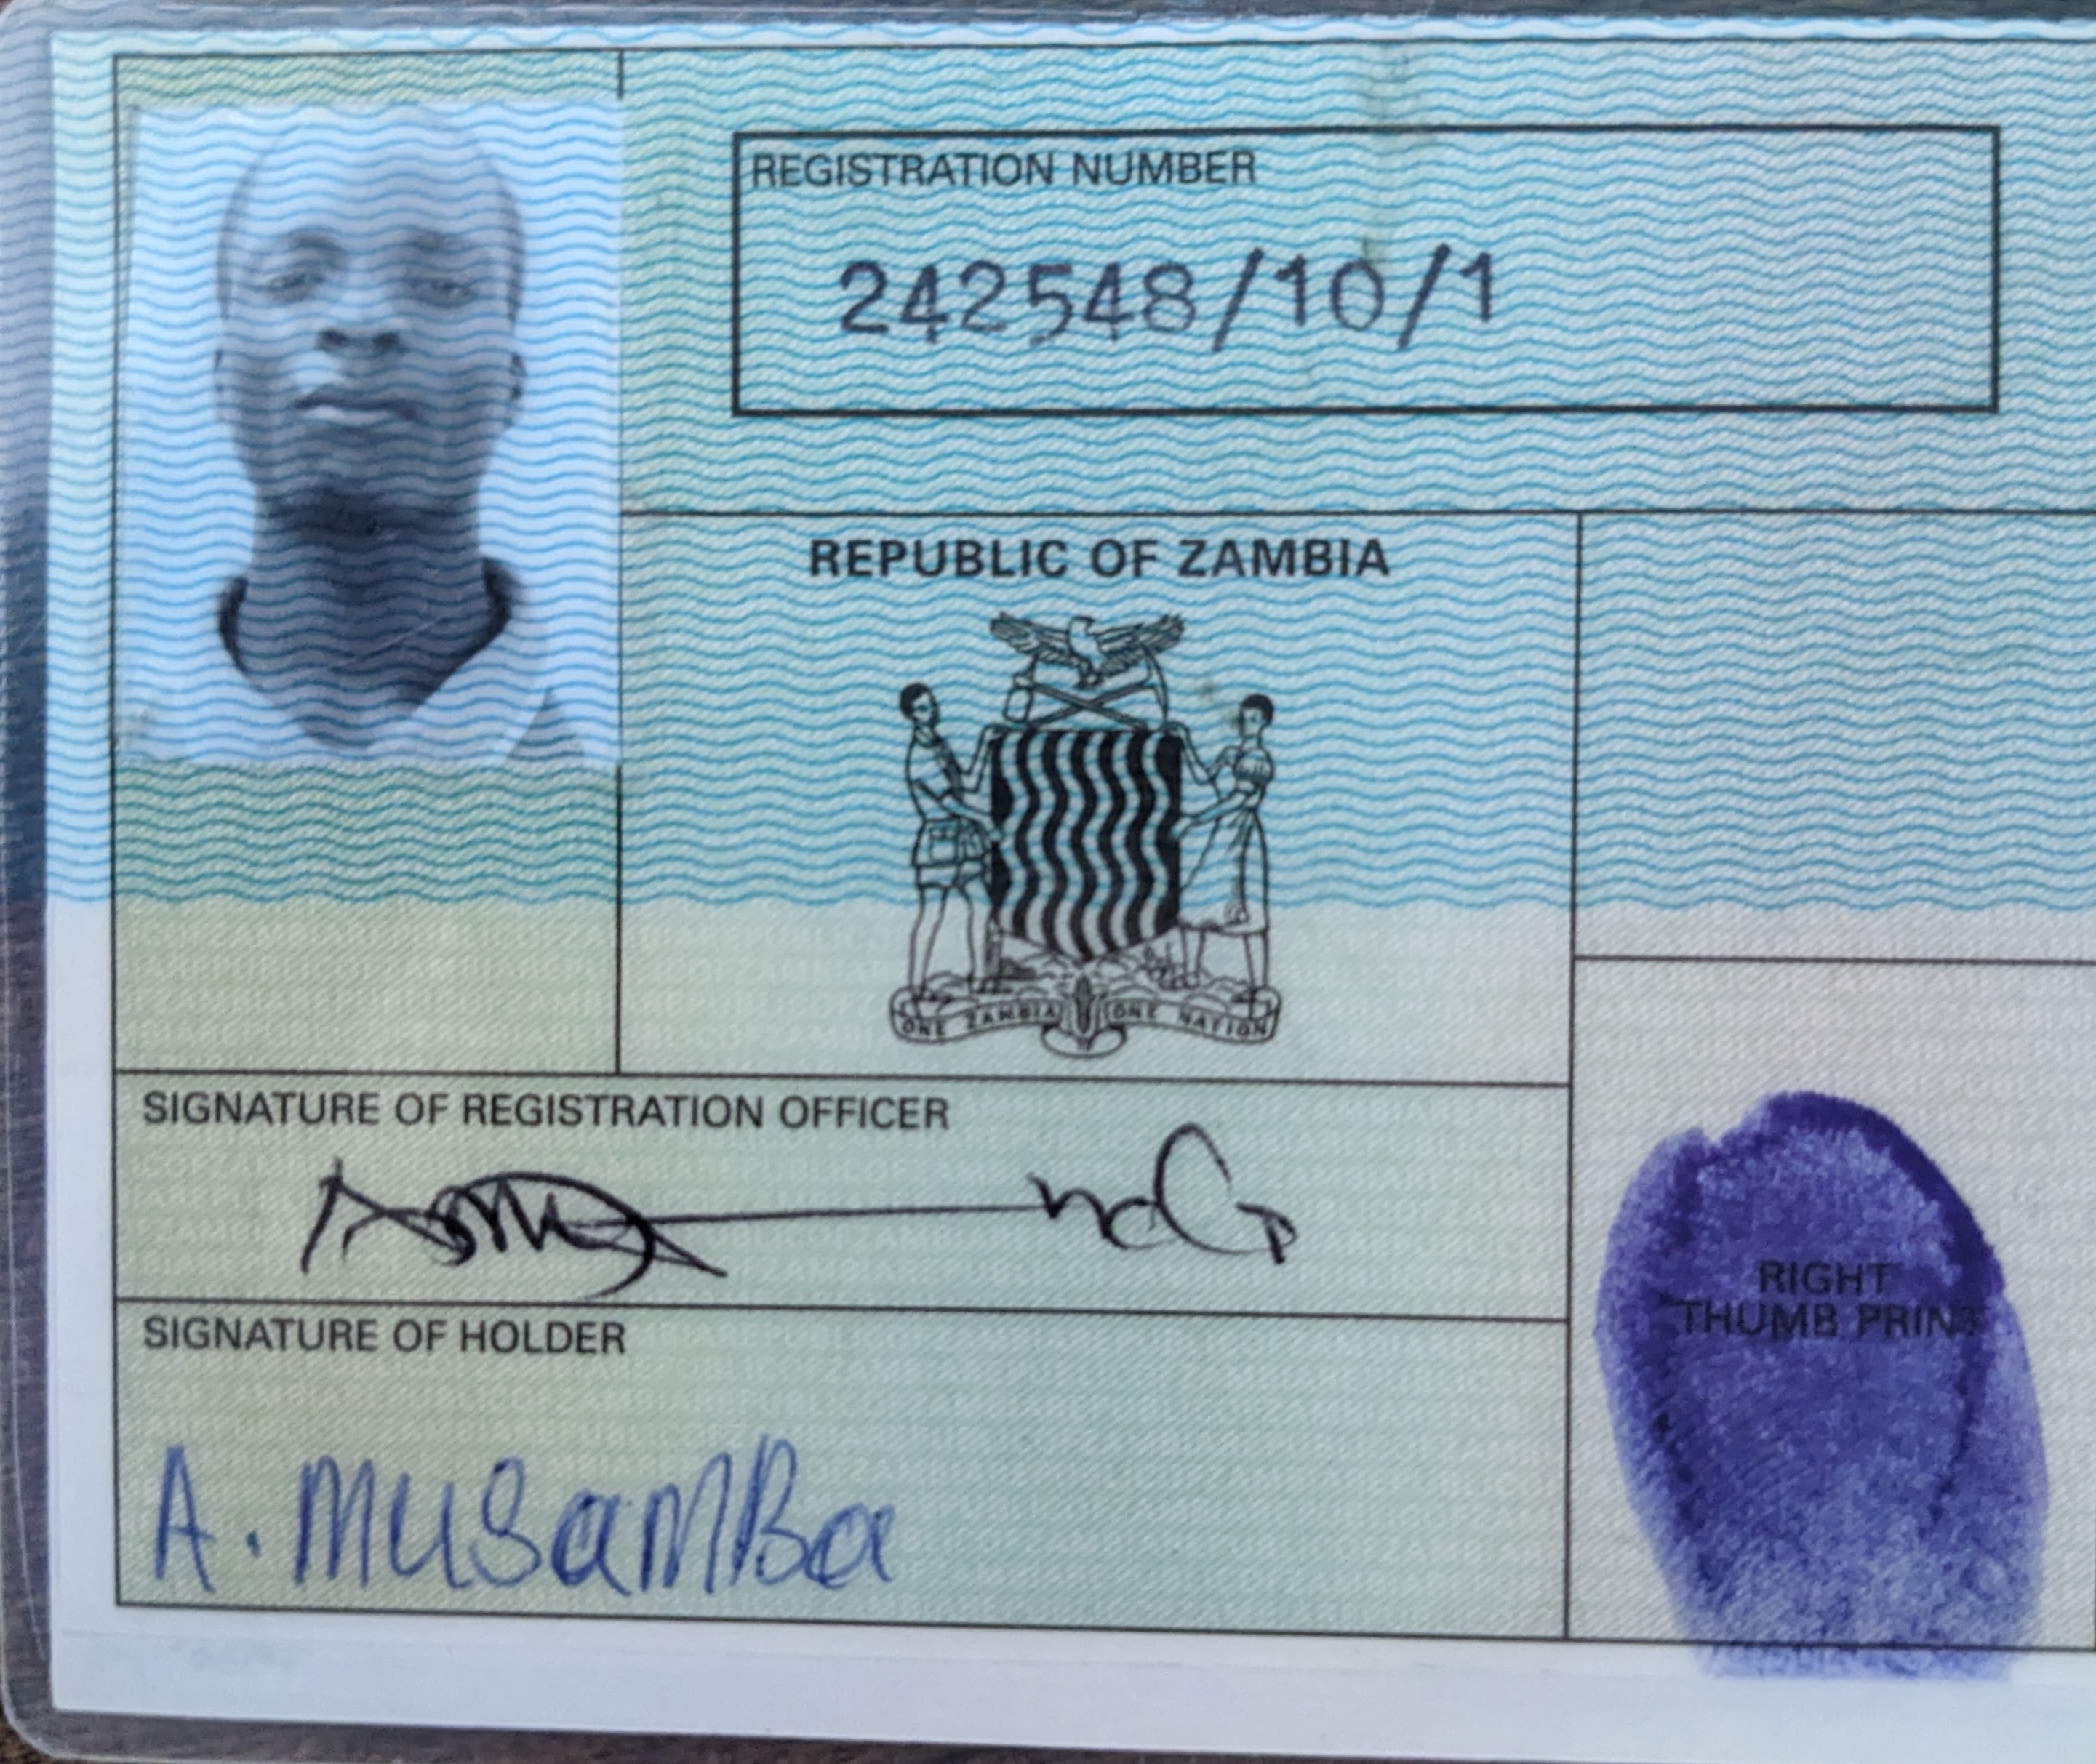 REGISTRATION NUMBER
242548/10/1
REPUBLIC OF ZAMBIA
ONE ZAMBIA ONE NATION
SIGNATURE OF REGISTRATION OFFICER
SIGNATURE OF HOLDER
A. MUSAMBa
RIGHT
THUMB PRINT